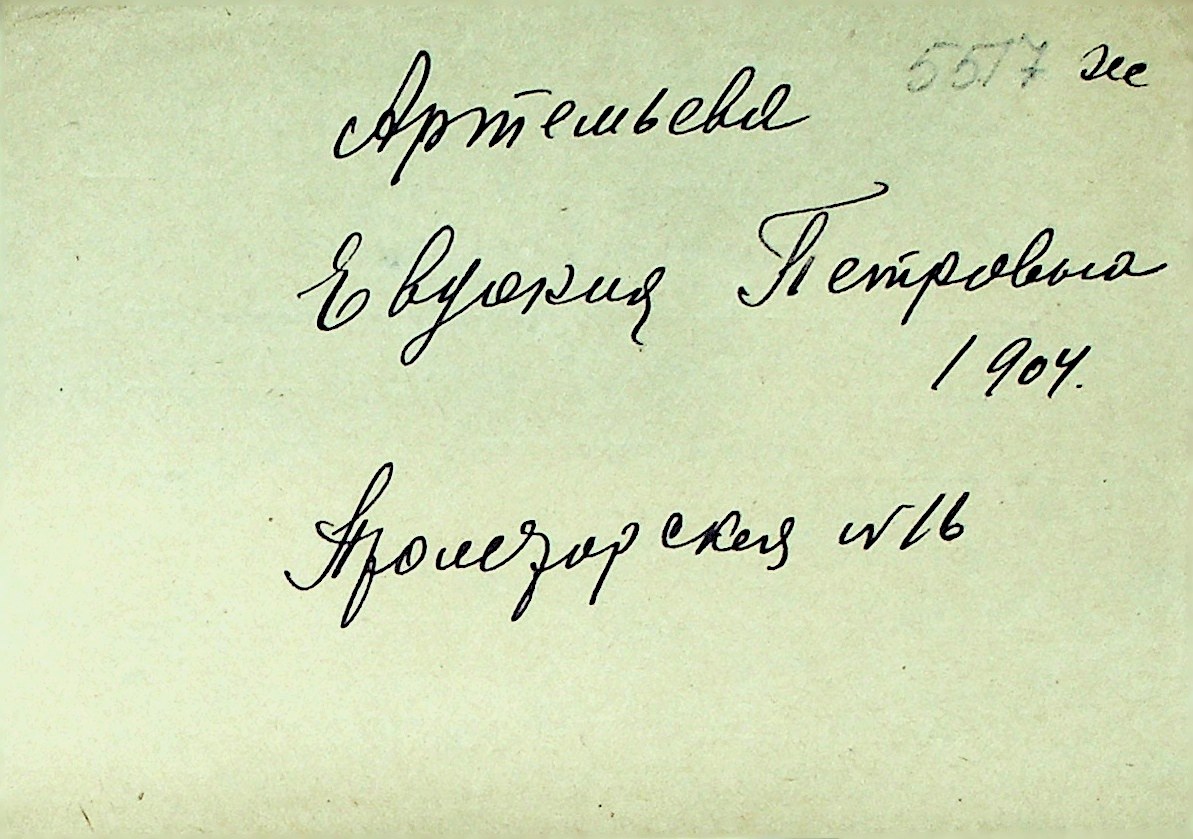 5517 же
Артемьева
Евдокия Петровна
1904.
№16